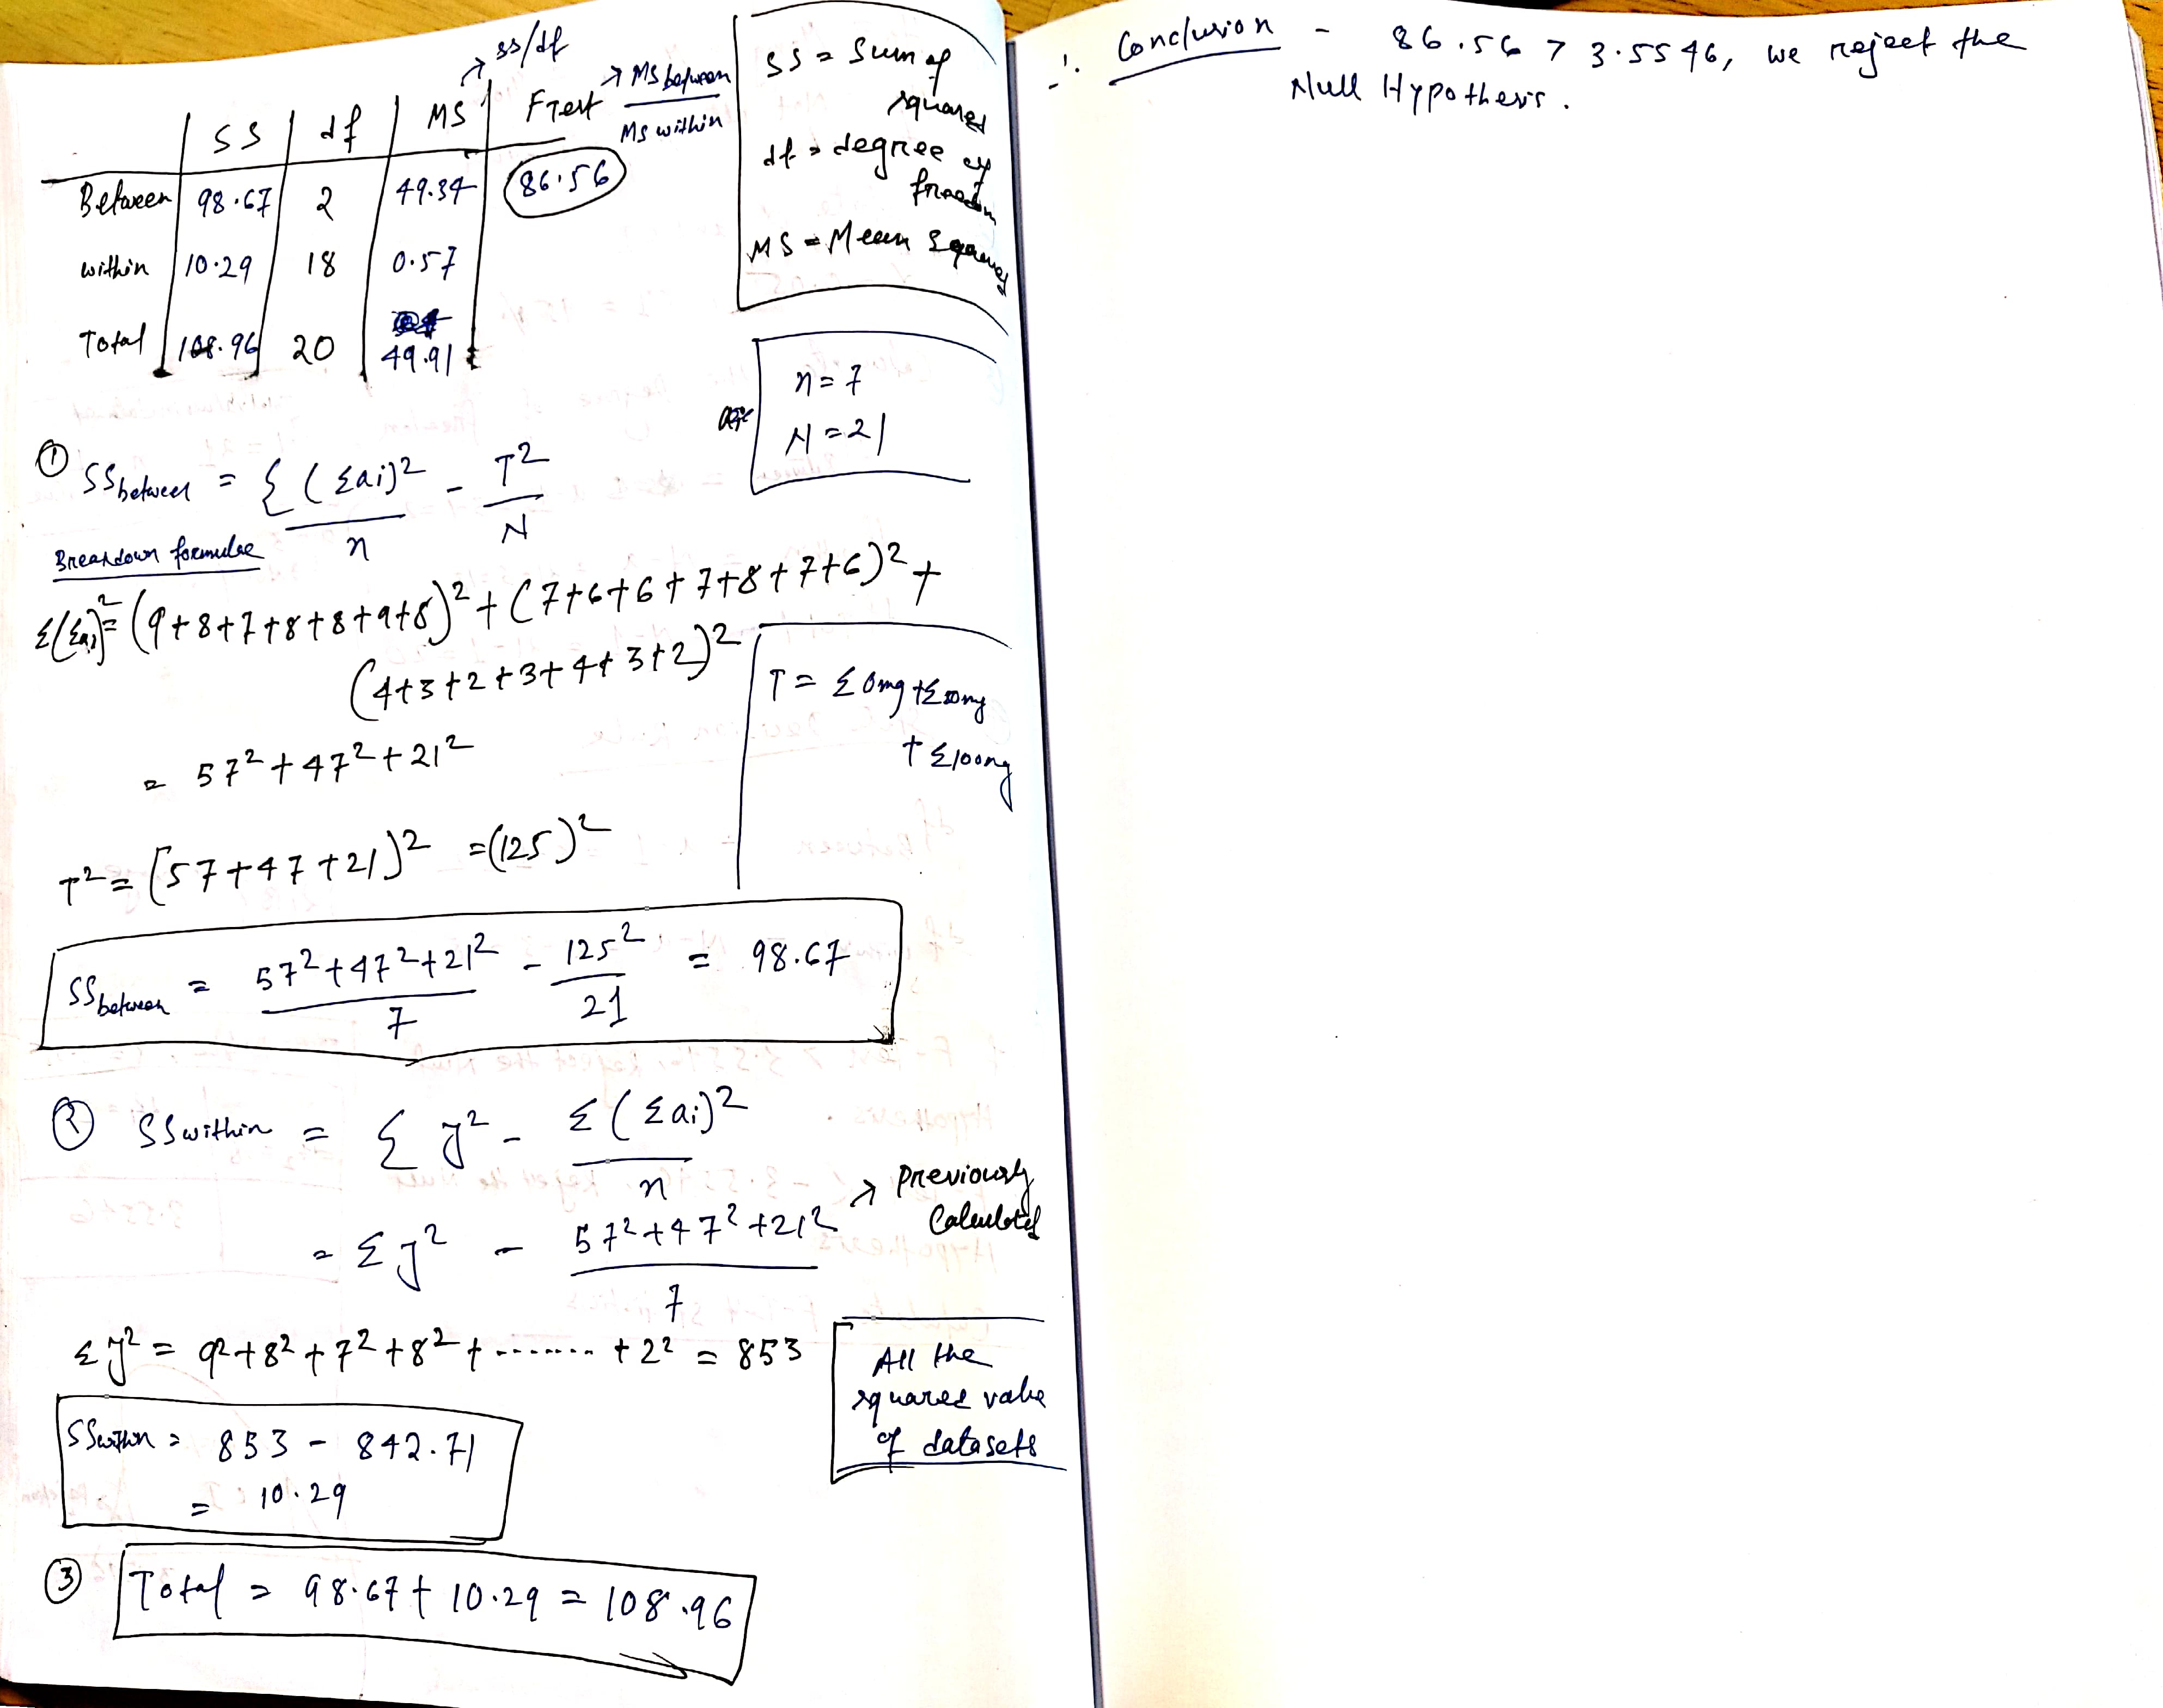 → SS/df
SS | df | MS | F Test → MS between / MS within
Between | 98.67 | 2 | 49.34 | 86.56
within | 10.29 | 18 | 0.57
Total | 108.96 | 20 | 49.91
SS = Sum of
squares
df = degree of
freedom
MS = Mean Squares
n = 7
N = 21
① SSbetween = Σ (Σai)² / n - T² / N
Breakdown formulae
Σ(Σai)² = (9+8+7+8+8+9+8)² + (7+6+6+7+8+7+6)² +
(4+3+2+3+4+3+2)²
= 57² + 47² + 21²
T = Σ0mg + Σ50mg
+ Σ100mg
T² = [57+47+21]² = (125)²
SSbetween = 57²+47²+21² / 7 - 125² / 21 = 98.67
② SSwithin = Σ y² - Σ (Σai)² / n
= Σy² - 57²+47²+21² / 7 → Previously
Calculated
Σy² = 9²+8²+7²+8²+.......+2² = 853
All the
squared value
of datasets
SSwithin = 853 - 842.71
= 10.29
③ Total = 98.67 + 10.29 = 108.96
∴ Conclusion - 86.56 > 3.5546, we reject the
Null Hypothesis.